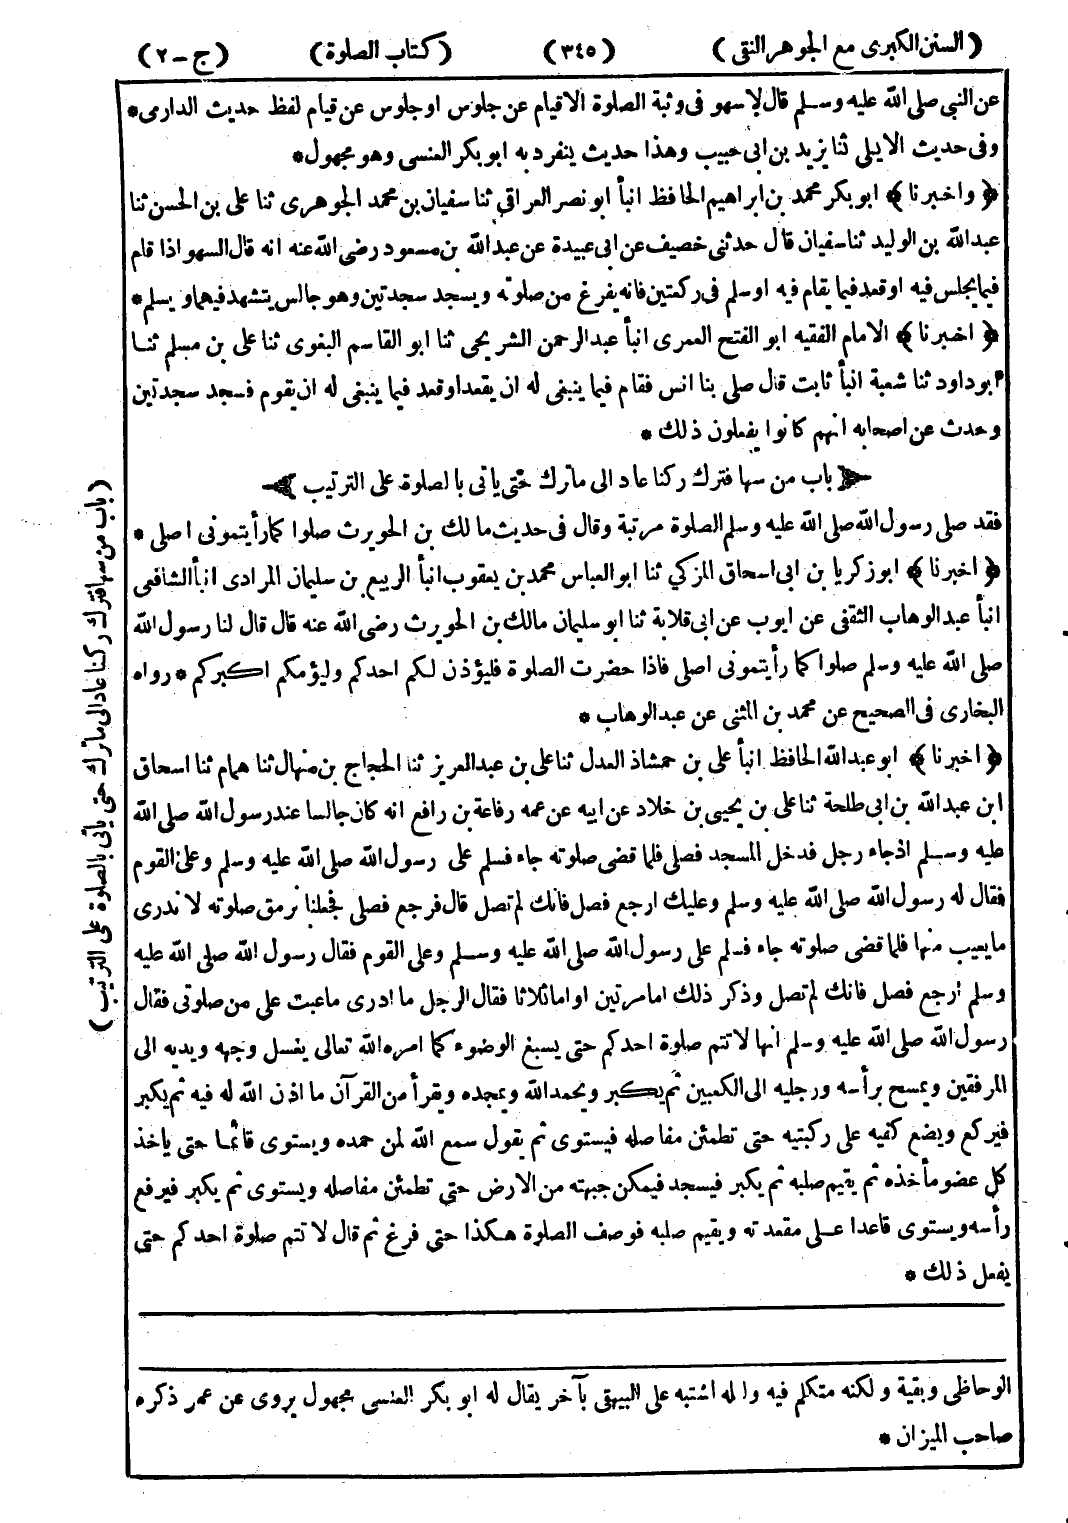 (السنن الكبرى مع الجوهر النقى) (٣٤٥) (كتاب الصلوة) (ج-٢)
عن النبى صلى الله عليه وسلم قال لا سهو فى وثبة الصلوة الا قيام عن جلوس او جلوس عن قيام لفظ حديث الدارمى *
وفى حديث الايلى ثنا يزيد بن ابى حبيب وهذا حديث ينفرد به ابو بكر العنسى وهو مجهول *
﴿واخبرنا﴾ ابو بكر محمد بن ابراهيم الحافظ انبأ ابو نصر العراقى ثنا سفيان بن محمد الجوهرى ثنا على بن الحسن ثنا
عبد الله بن الوليد ثنا سفيان قال حدثنى خصيف عن ابى عبيدة عن عبد الله بن مسعود رضى الله عنه انه قال السهو اذا قام
فيما يجلس فيه او قعد فيما يقام فيه او سلم فى ركعتين فانه يفرغ من صلوته ويسجد سجدتين وهو جالس يتشهد فيهما ويسلم *
﴿اخبرنا﴾ الامام الفقيه ابو الفتح العمرى انبأ عبد الرحمن الشريحى ثنا ابو القاسم البغوى ثنا على بن مسلم ثنا
ابو داود ثنا شعبة انبأ ثابت قال صلى بنا انس فقام فيما ينبغى له ان يقعد او قعد فيما ينبغى له ان يقوم فسجد سجدتين
وحدث عن اصحابه انهم كانوا يفعلون ذلك *
﴿باب من سها فترك ركنا عاد الى ما ترك حتى ياتى بالصلوة على الترتيب﴾
فقد صلى رسول الله صلى الله عليه وسلم الصلوة مرتبة وقال فى حديث مالك بن الحويرث صلوا كما رأيتمونى اصلى *
﴿اخبرنا﴾ ابو زكريا بن ابى اسحاق المزكي ثنا ابو العباس محمد بن يعقوب انبأ الربيع بن سليمان المرادى انبأ الشافعى
انبأ عبد الوهاب الثقفى عن ايوب عن ابى قلابة ثنا ابو سليمان مالك بن الحويرث رضى الله عنه قال قال لنا رسول الله
صلى الله عليه وسلم صلوا كما رأيتمونى اصلى فاذا حضرت الصلوة فليؤذن لكم احدكم وليؤمكم اكبركم * رواه
البخارى فى الصحيح عن محمد بن المثنى عن عبد الوهاب *
﴿اخبرنا﴾ ابو عبد الله الحافظ انبأ على بن حمشاذ العدل ثنا على بن عبد العزيز ثنا الحجاج بن منهال ثنا همام ثنا اسحاق
ابن عبد الله بن ابى طلحة ثنا على بن يحيى بن خلاد عن ابيه عن عمه رفاعة بن رافع انه كان جالسا عند رسول الله صلى الله
عليه وسلم اذ جاء رجل فدخل المسجد فصلى فلما قضى صلوته جاء فسلم على رسول الله صلى الله عليه وسلم وعلى القوم
فقال له رسول الله صلى الله عليه وسلم وعليك ارجع فصل فانك لم تصل قال فرجع فصلى فجعلنا نرمق صلوته لا ندرى
ما يعيب منها فلما قضى صلوته جاء فسلم على رسول الله صلى الله عليه وسلم وعلى القوم فقال رسول الله صلى الله عليه
وسلم ارجع فصل فانك لم تصل وذكر ذلك اما مرتين او اما ثلاثا فقال الرجل ما ادرى ما عبت على من صلوتى فقال
رسول الله صلى الله عليه وسلم انها لا تتم صلوة احدكم حتى يسبغ الوضوء كما امره الله تعالى يغسل وجهه ويديه الى
المرفقين ويمسح برأسه ورجليه الى الكعبين ثم يكبر ويحمد الله ويمجده ويقرأ من القرآن ما اذن الله له فيه ثم يكبر
فيركع ويضع كفيه على ركبتيه حتى تطمئن مفاصله فيستوى ثم يقول سمع الله لمن حمده ويستوى قائما حتى ياخذ
كل عضو مأخذه ثم يقيم صلبه ثم يكبر فيسجد فيمكن جبهته من الارض حتى تطمئن مفاصله ويستوى ثم يكبر فيرفع
رأسه ويستوى قاعدا على مقعدته ويقيم صلبه فوصف الصلوة هكذا حتى فرغ ثم قال لا تتم صلوة احدكم حتى
يفعل ذلك *
الوحاظى وبقية ولكنه متكلم فيه ولعله اشتبه على البيهقى بآخر يقال له ابو بكر العنسى مجهول يروى عن عمر ذكره
صاحب الميزان *
(باب من سها فترك ركنا عاد الى ما ترك حتى ياتى بالصلوة على الترتيب)